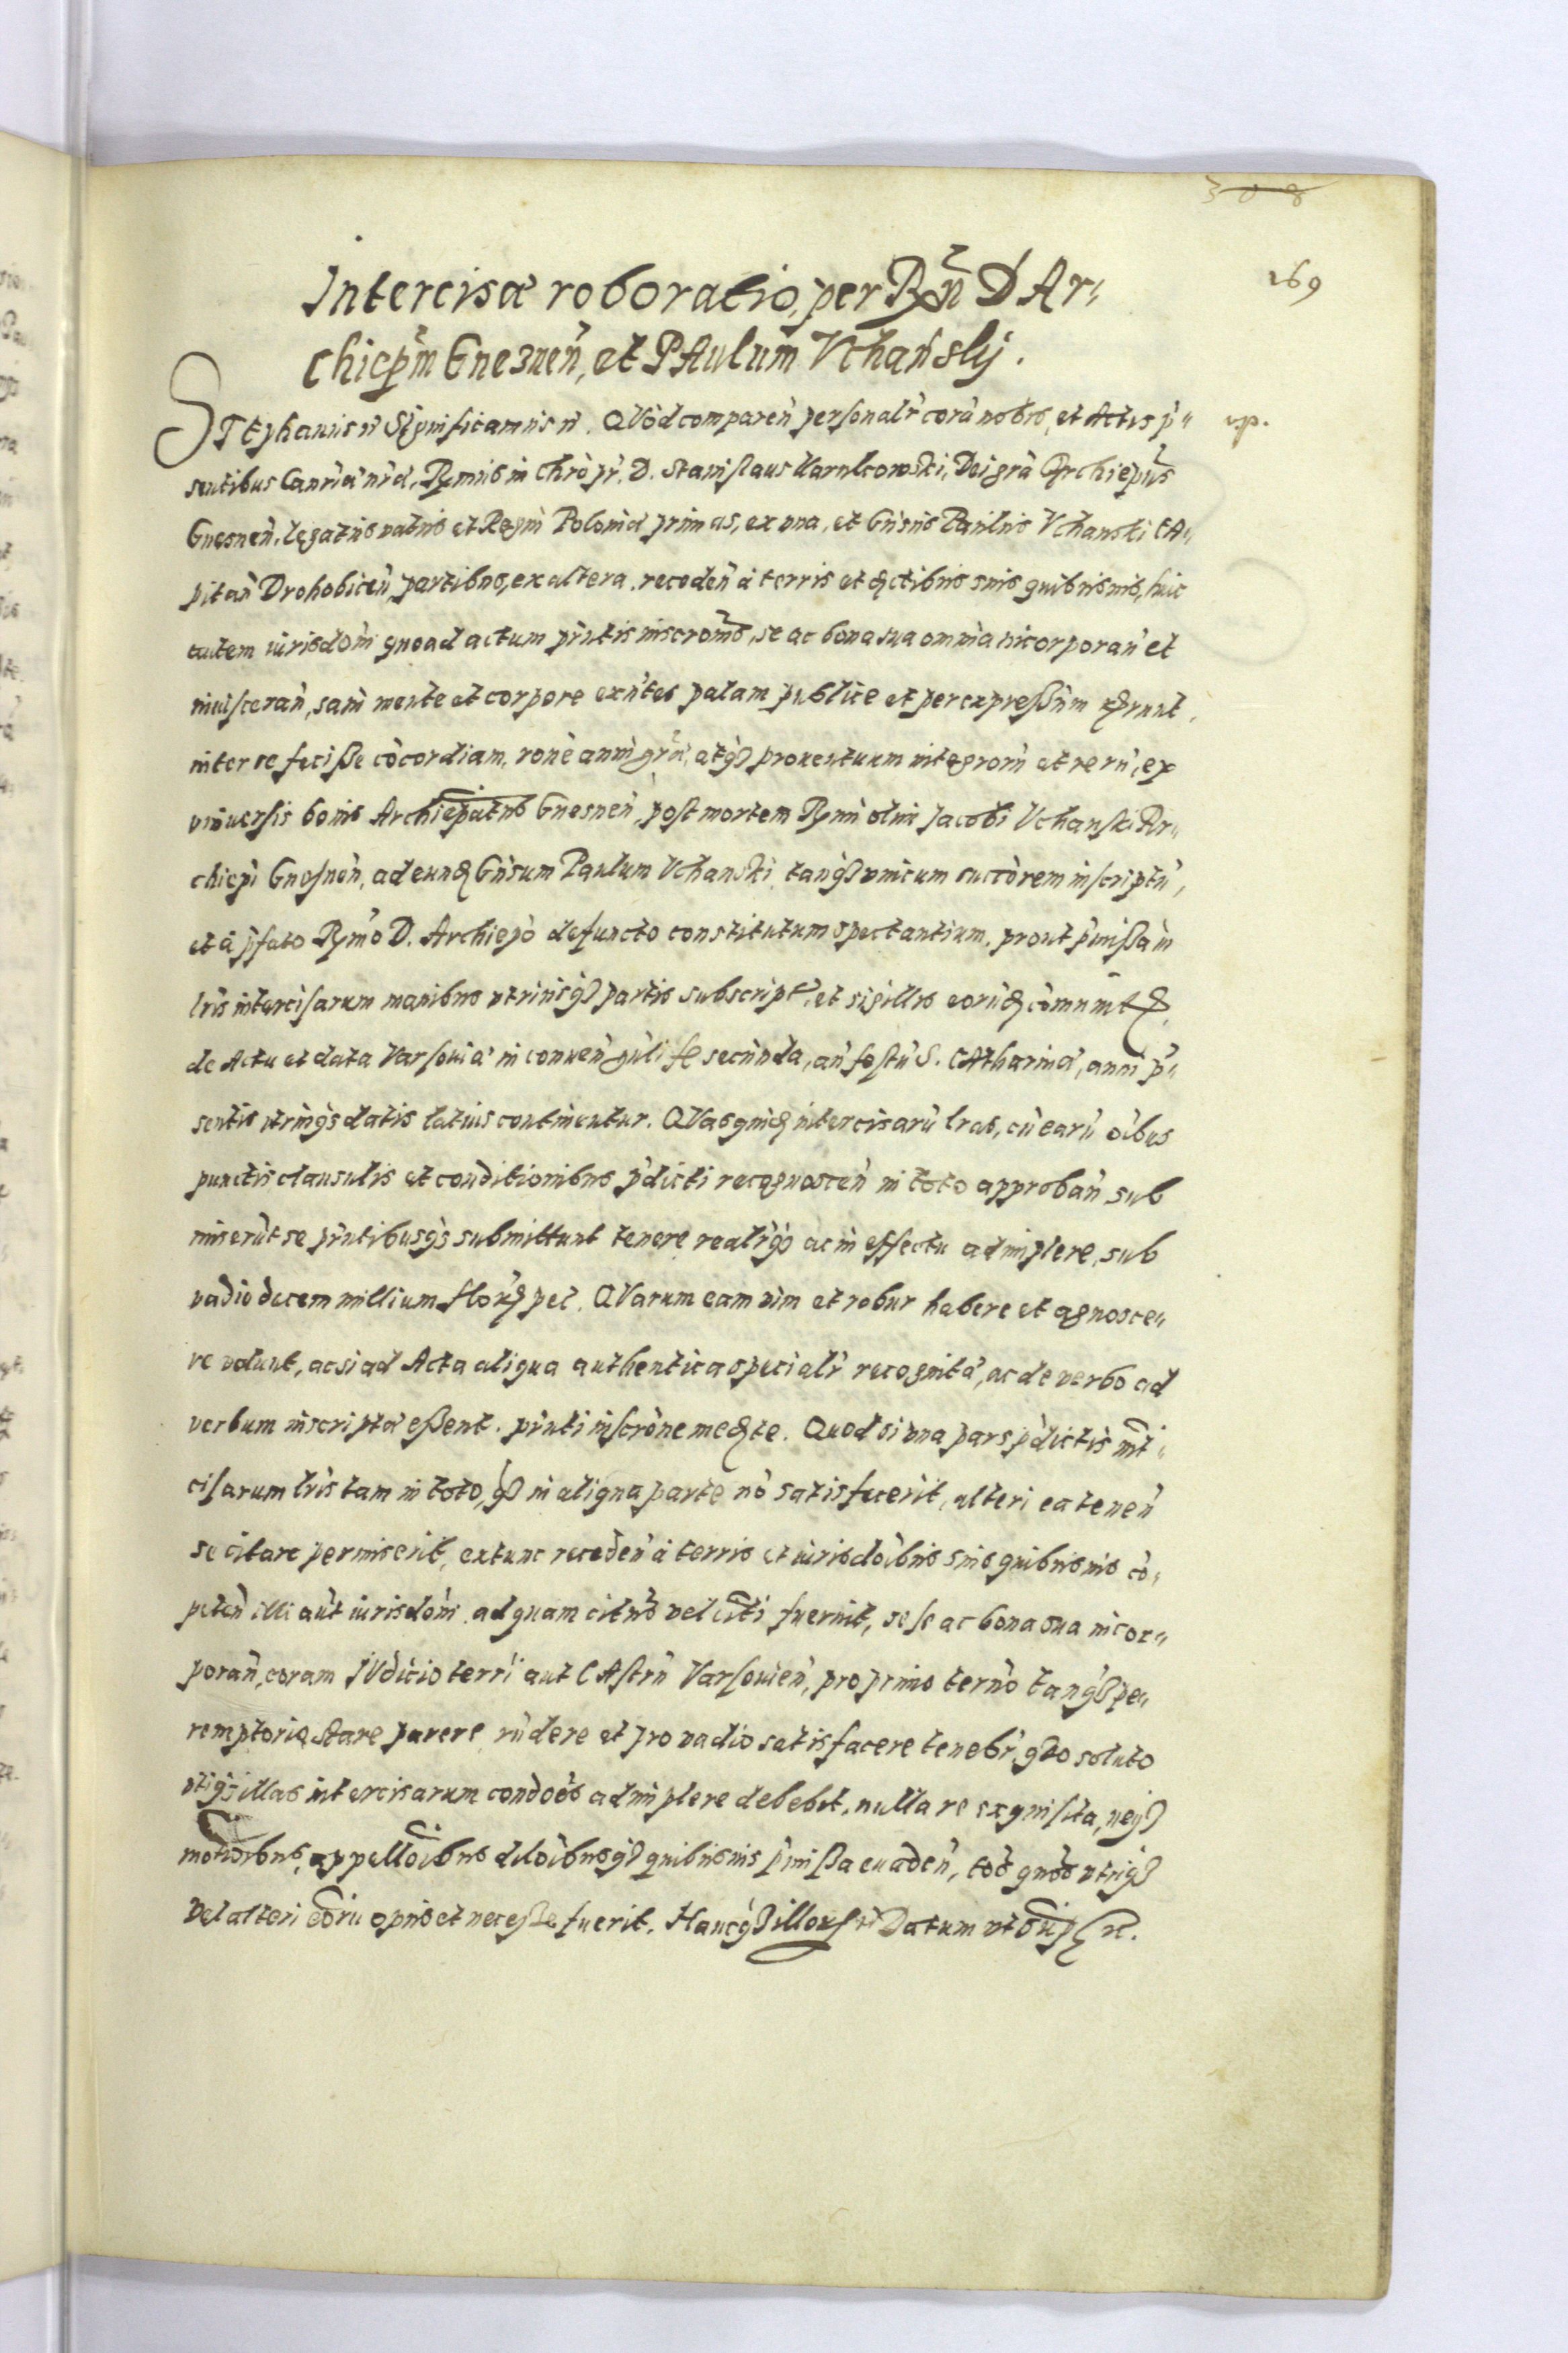 308
169
Intercisæ roboratio, per Rmn̄ D Ar„
chiep̄m Gneznen̄, et PAulum Vchańskj.
STephanus n̄ Significamus n̄. QVod comparen̄ personalr̄ corā nobis, et Actis p̄„
vp.
sentibus Canriæ nrā, Rmus in Chrō pr̄. D. Stanislaus Karnkowski, Dei grā Archiepūs
Gnesnen̄. legatus natus et Regni Poloniæ primas, ex vna, et Gn̄sus Paulus Vchanski CA„
pitan̄ Drohobicen̄ partibus, ex altera. receden̄ à terris et ctibus suis quibusuis, huic
autem iurisdom̄ quoad actum pn̄tis inscronis, se ac bona sua omnia incorporan̄ et
inuisceran̄, sani mente et corpore exn̄tes palam publice et per expressum
inter se fecisse cōcordiam, rone anni grā, atq prouentuum integrorū et rerū, ex
vniuersis bonis Archiep̄atus Gnesnen̄, post mortem Rmi olim Jacobi Vchanski Ar„
chiepi Gnesnen̄, ad eund Gn̄sum Paulum Vchanski, tanq vnicum succōrem inscriptū,
et à p̄fato Rmo D. Archiepō defuncto constitutum spectantium. prout p̄missa in
lris intercisarum manibus vtriusq partis subscript̄, et sigillis eorūd cōmunit
de Actu et data Varsouiæ in conuen̄ gn̄li fe secunda, an̄ festū S. CAtharinæ, anni p̄„
sentis vtrinqs datis latius continentur. QVas quid intercisarū lras, cū earū oībus
punctis clausulis et conditionibus p̄dicti recognoscen̄ in toto approban̄ sub
miserūt se pn̄tibusqs submittunt tenere realrq ac in effectu adimplere, sub
vadio decem millium flor pec. QVarum eam vim et robur habere et agnosce„
re volunt, ac si ad Acta aliqua authentica specialr̄ recognitæ, ac de verbo ad
verbum inscriptæ essent. pn̄ti inscrone medte. Quod si vna pars p̄dictis int̄
cisarum lris tam in toto, q in aliqua parte nō satisfecerit, alteri ea tenen̄
se citare permiserit, extunc receden̄ à terris et iurisdoibus suis quibusuis cō„
peten̄ illi aūt iurisdoni ad quam citus vel citi fuerint, sese ac bona sua incor„
poran̄, coram JVdicio terri aut CAstrn̄ Varsouien̄, pro primo terno tanq pe„
remptorio, stare parere rn̄dere et pro vadio satisfacere tenebr̄, quo soluto
vtiqs illas intercisarum condoēs adimplere debebit, nulla re exquisita, neq
motioibus, appelloibus diloibusq quibusuis p̄missa euaden̄, tōs quōs vtriq
vel alteri eōrū opus et necesse fuerit. Hancq illor n̄ Datum vt sup n̄.